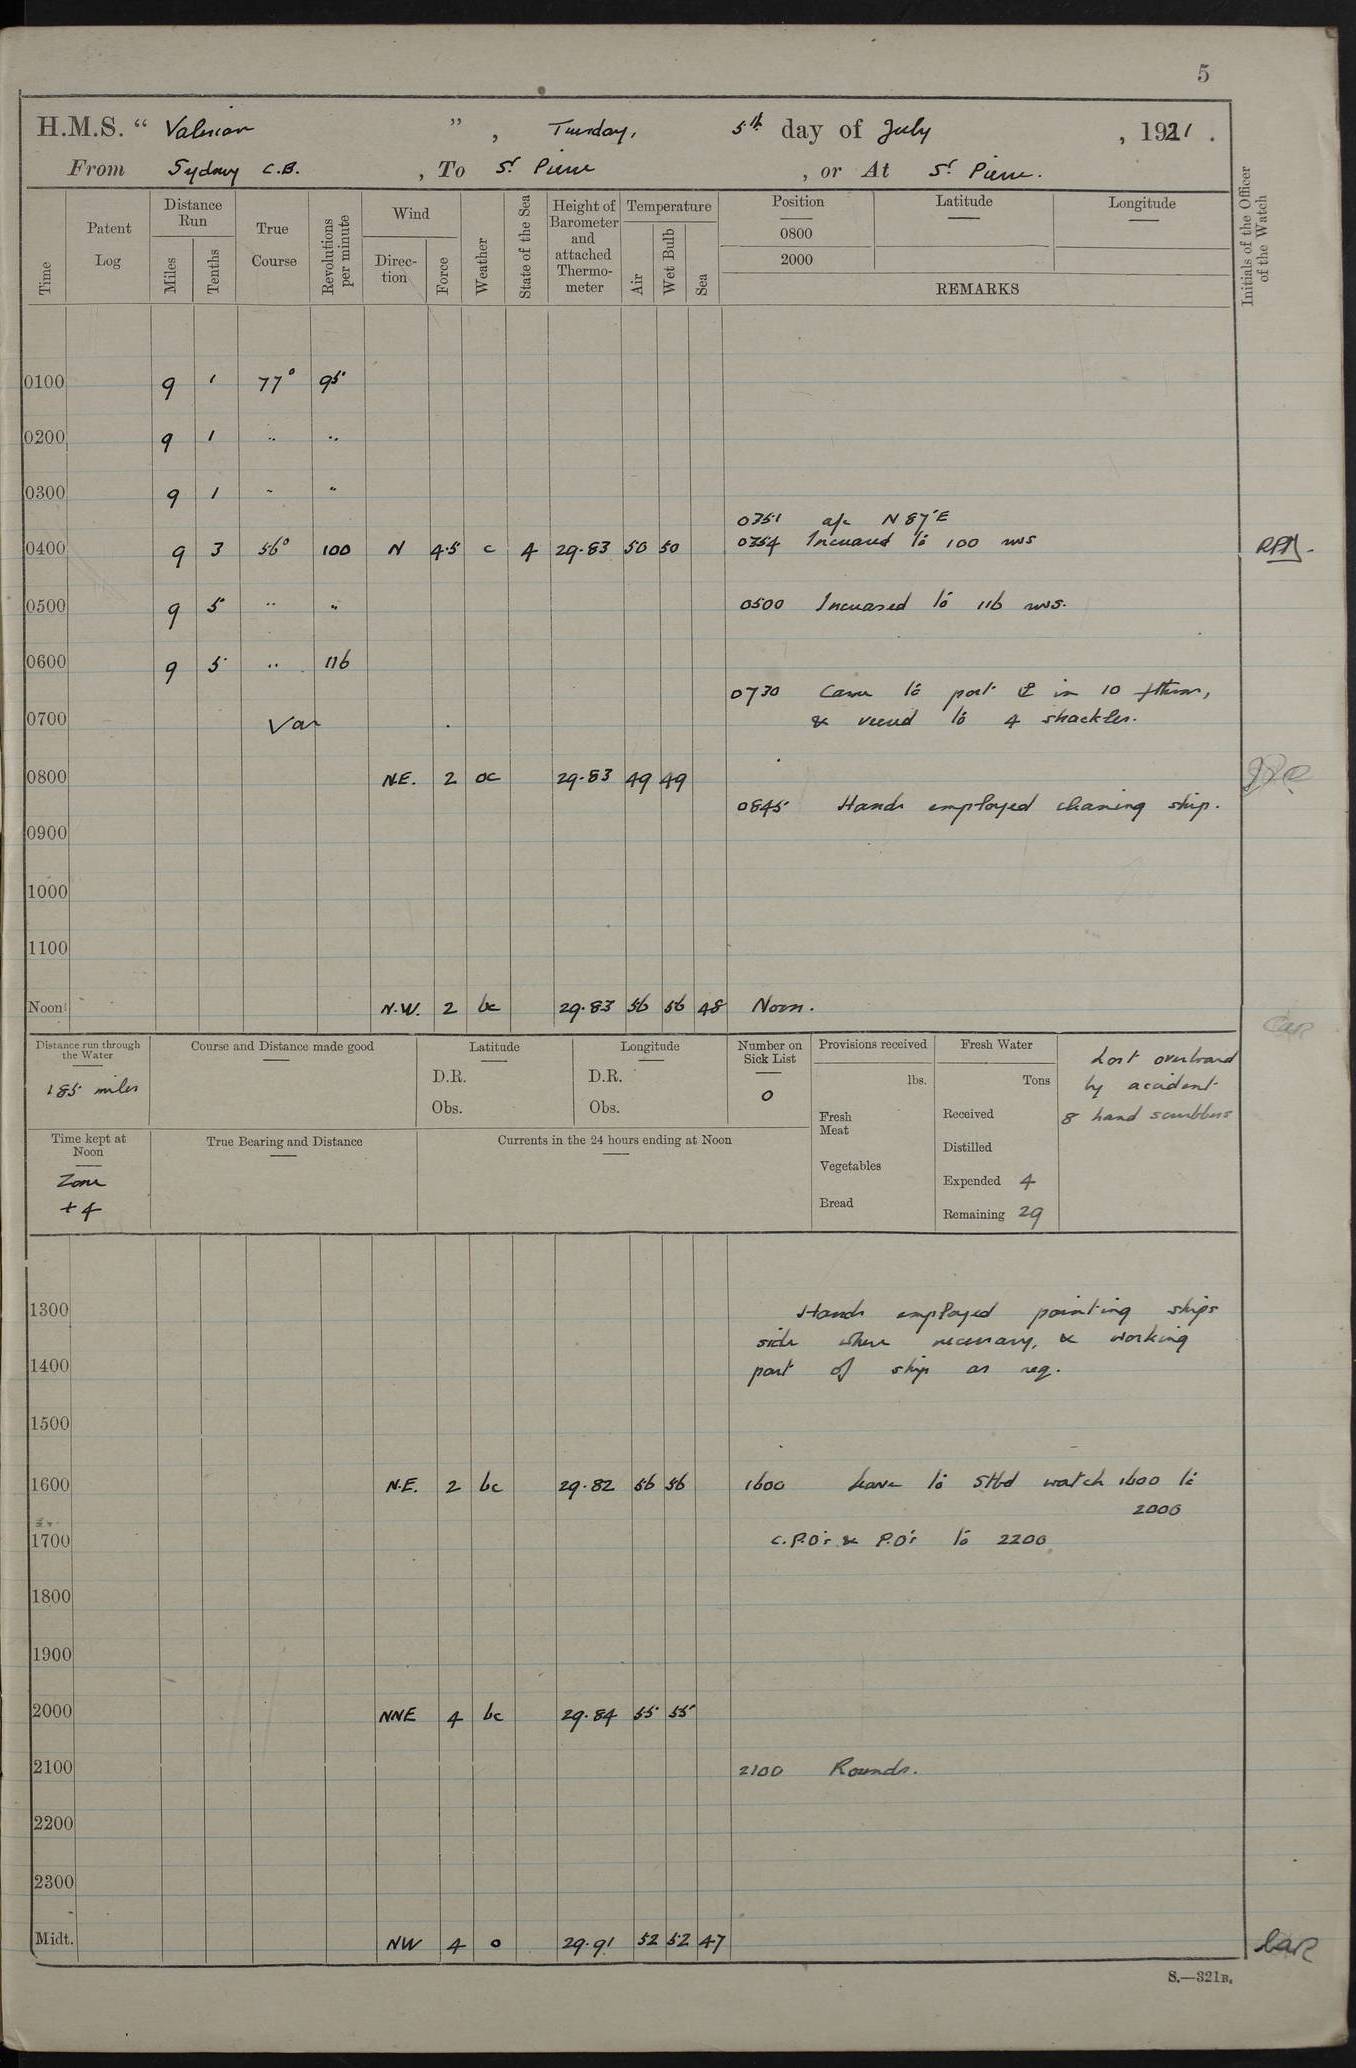 5
H.M.S. " Valerian " , Tuesday, 5th day of July , 1921 .
From Sydney C.B. , To St Pierre , or At St Pierre.
Time Patent Log Distance Run Miles Tenths True Course Revolutions per minute Wind Direction Force Weather State of the Sea Height of Barometer and attached Thermometer Temperature Air Wet Bulb Sea Position 0800 2000 Latitude Longitude REMARKS Initials of the Officer of the Watch
0100 9 1 77° 95
0200 9 1 " "
0300 9 1 " "
0351 a/c N 87° E
0400 9 3 56° 100 N 4.5 c 4 29.83 50 50 0354 Increased to 100 revs
0500 9 5 " " 0500 Increased to 116 revs.
0600 9 5 " 116
0730 Came to port ⚓ in 10 fthms,
0700 Var & veered to 4 shackles.
0800 N.E. 2 oc 29.83 49 49
0845 Hands employed cleaning ship.
0900
1000
1100
Noon N.W. 2 bc 29.83 56 56 48 Noon.
Distance run through the Water
185 miles
Course and Distance made good
Latitude
D.R.
Obs.
Longitude
D.R.
Obs.
Number on Sick List
0
Provisions received
lbs.
Fresh Meat
Vegetables
Bread
Fresh Water
Tons
Received
Distilled
Expended 4
Remaining 29
Lost overboard
by accident
8 hand scrubbers
Time kept at Noon
Zone
+ 4
True Bearing and Distance
Currents in the 24 hours ending at Noon
1300 Hands employed painting ships
side where necessary, & working
1400 part of ship as req.
1500
1600 N.E. 2 bc 29.82 56 56 1600 Leave to Stbd watch 1600 to
2000
1700 C.P.O's & P.O's to 2200
1800
1900
2000 NNE 4 bc 29.84 55 55
2100 2100 Rounds.
2200
2300
Midt. NW 4 o 29.91 52 52 47
S.—321B.